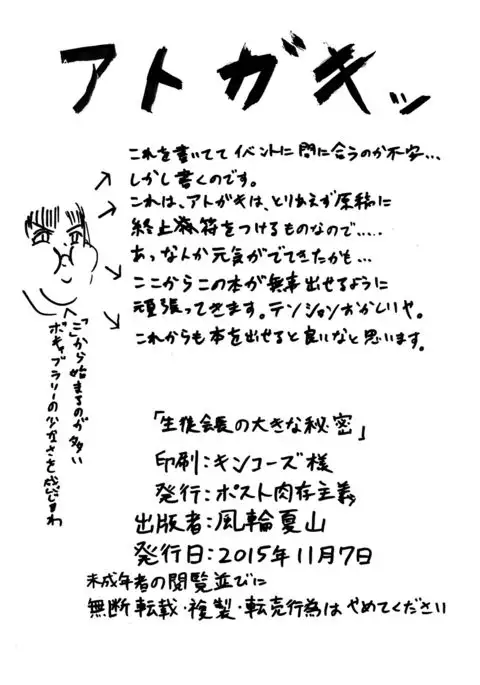 アトガキッ
これを書いててイベントに間に合うのか不安…
しかし書くのです。
これは、アトガキは、とりあえず原稿に
終止符をつけるものなので……
あっなんか元気がでてきたかも…
ここからこの本が無事出せるように
頑張ってきます。テンションおかしいや。
これからも本を出せると良いなと思います。
「こ」から始まるのが多い
ボキャブラリーの少なさを感じるわ
「生徒会長の大きな秘密」
印刷:キンコーズ様
発行:ポスト肉存主義
出版者:風輪夏山
発行日:2015年11月7日
未成年者の閲覧並びに
無断転載・複製・転売行為はやめてください